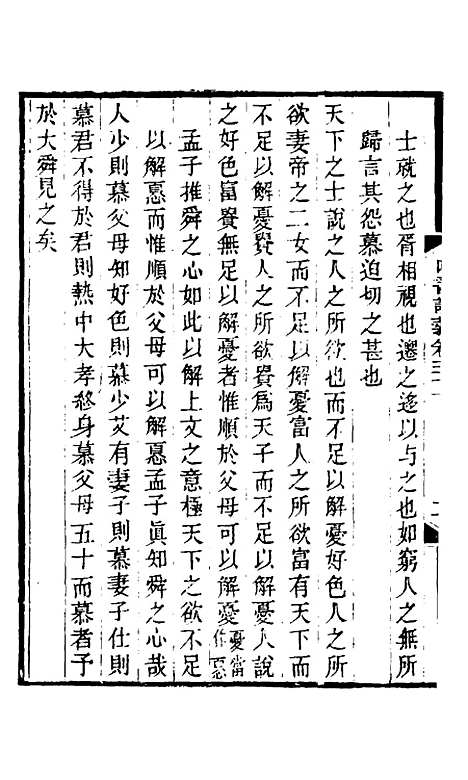 士就之也胥相視也遷之迻以与之也如窮人之無所
歸言其怨慕迫切之甚也
天下之士說之人之所欲也而不足以解憂好色人之所
欲妻帝之二女而不足以解憂富人之所欲富有天下而
不足以解憂貴人之所欲貴爲天子而不足以解憂人說
之好色富貴無足以解憂者惟順於父母可以解憂憂當作㥑
孟子推舜之心如此以解上文之意極天下之欲不足
以解㥑而惟順於父母可以解㥑孟子眞知舜之心哉
人少則慕父母知好色則慕少艾有妻子則慕妻子仕則
慕君不得於君則熱中大孝終身慕父母五十而慕者予
於大舜見之矣